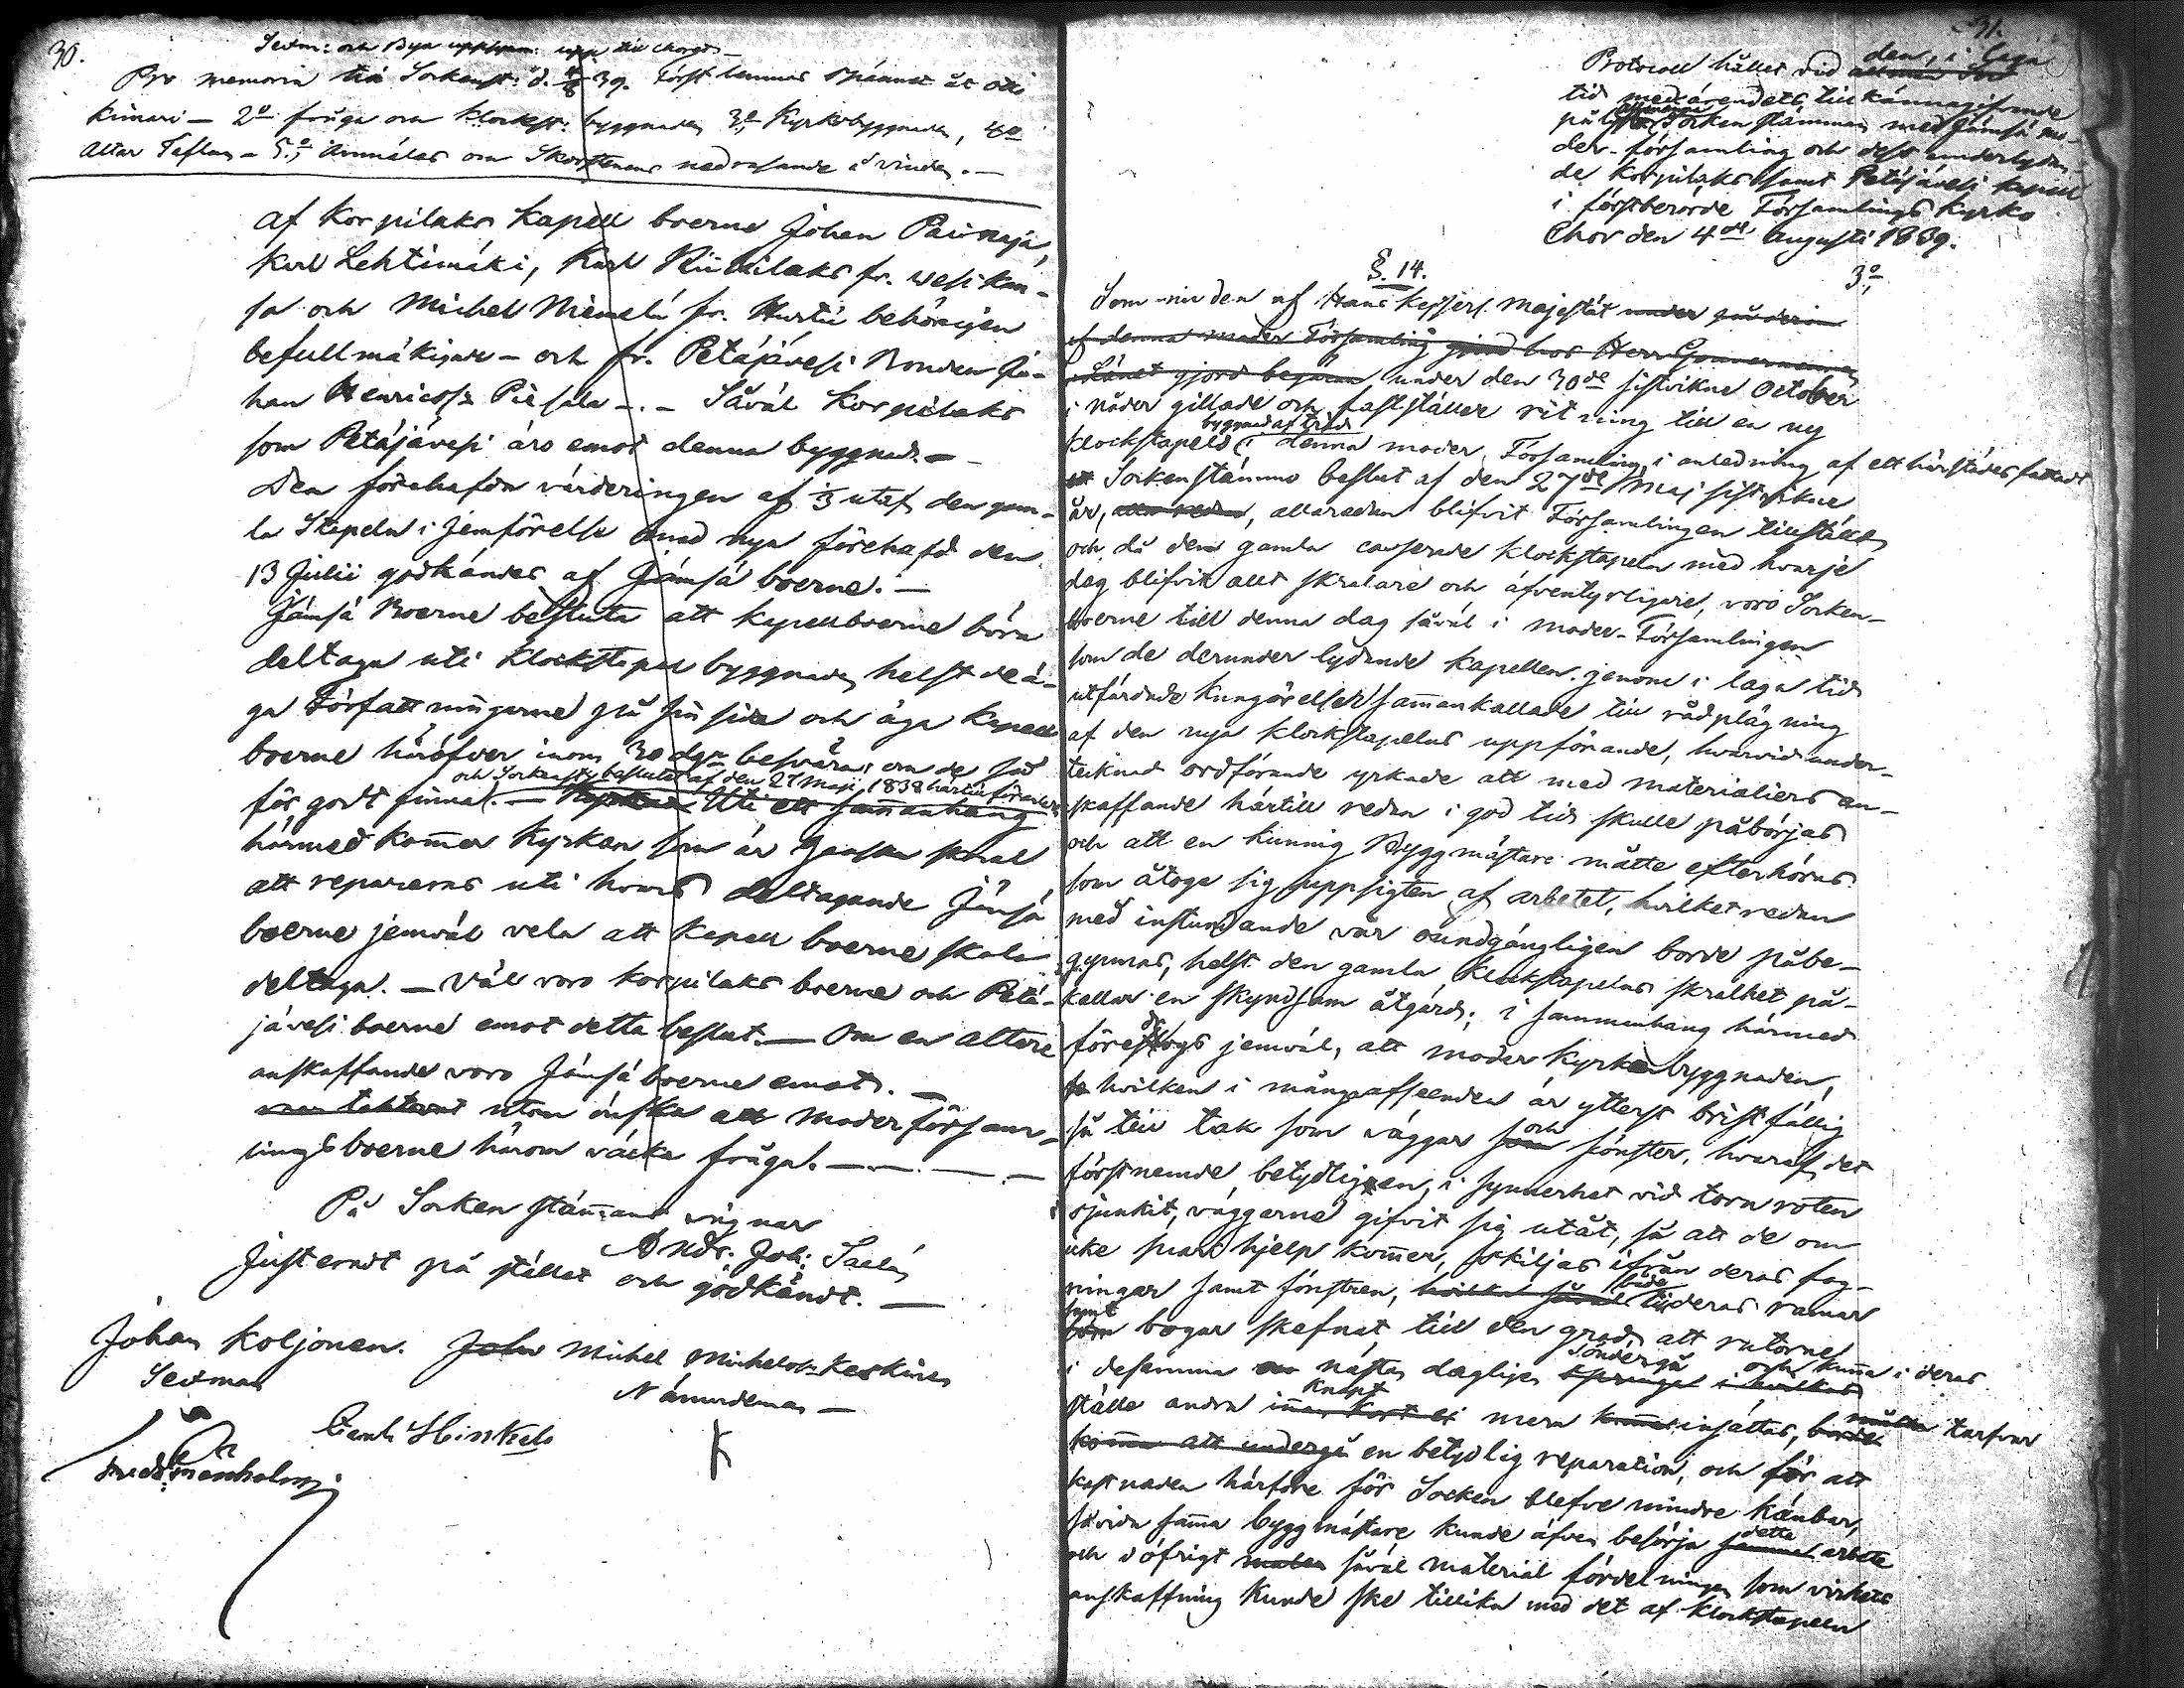 30.
Sexm: och Byn
Pro memoria till Sockenst: d. 4/8 39. Först lemnas spannet åt
Kinnari – 2o fråga om Klockst: byggnaden 3o Kyrkobyggnaden, 4o
Altar Taflan – 5o, Anmälas om Skorstenens nedrasande å vinden. –
af Korpilaks Kapell boerne Johan Päiväjä,
Karl Lehtimäki, Karl Niinilaks fr. Wesikan-
sa och Michel Niemelä fr. Hurtti behörigen
befullmäktigade – och fr. Petäjävesi Bonden Jo-
han Henricss: Piesala – . – Såväl Korpilaks
som Petäjävesi äro emot denna byggnad. –
Den förehafda värderingen af 1/3 utaf den gam-
la Stapeln i jemförelse med nya förehafd den
13 Julii godkändes af Jämsä boerne. –
Jämsä Boerne besluta att Kapellboerne böra
deltaga uti Klockstapel byggnaden helst de ä-
ga Författningarne på sin sida och äga Kapell
boerne häröfver inom 30 dgr besvära om de så
och Sockenst: beslutet af den 27 Maji 1838 härtill föranleder
för godt finna. – Uti ett sam̄anhang
härmed kom̄er Kyrkan som är ganska skral
att repareras uti hvars deltagande Jämsä
boerne jemväl vela att Kapell boerne skola
deltaga. – Väl voro Korpilaks boerne och Petä-
jävesi boerne emot detta beslut. – Om en altare
anskaffande voro Jämsä boerne emot. –
utan önska att moderförsam-
lings boerne härom väcka fråga. –
På Sockenstäm̄ans vägnar
Andr. Joh: Saelan
Justeradt på stället och godkändt. –
Johan Koljonen. Michel Michelss: Keskinen
Sexman Nämndeman –
Carl Hinkels
31.
Protocoll hållet vid den, i laga
tid med ärendets tillkännagifvande
pålyste allmänna Sockenstämman med Jämsä mo-
der-församling och dess underlydan-
de Korpilaks samt Petäjävesi kapell
i förstberörde Församlings Kyrko
Chor den 4de Augusti 1839.
§. 14. 3o
Som nu den af Hans Kejserl. Majestät under
af denna moder Församling gjord hos Herr Gouverneuren
i Länet gjord begäran under den 30de sistvikne October
i nåder gillade och fastställde ritning till en ny
Klockstapels byggnad af träd i denna moder Församling i anledning af ett härstädes fattadt
Sockenstämmo beslut af den 27de Maj sistvikne
år, allaredan blifvit Församlingen tillställd,
och då den gamla casserade klockstapeln med hvarje
dag blifvit allt skralare och äfventyrligare, voro Socken-
boerne till denna dag såväl i moder-Församlingen
som de derunder lydande Kapellen genom i laga tid
utfärdade kungörelser sam̄ankallade till rådplägning
af den nya klockstapelns uppförande, hvarvid under-
teknad ordförande yrkade att med materialiers an-
skaffande härtill redan i god tid skulle påbörjas
och att en kunnig Byggmästare måtte efterhöras
som åtoge sig uppsigten af arbetet, hvilket redan
med instundande vår oundgängligen borde påbe-
gynnas, helst den gamla Klockstapelns skralhet på-
kallar en skyndsam åtgärd; i sammanhang härmed
föreslogs jemväl, att moder Kyrkobyggnaden,
hvilken i många afseenden är ytterst bristfällig
så till tak som väggar och fönster, hvaraf det
förstnemde betydligen, i synnerhet vid torn roten
sjunkit, väggarna gifvit sig utåt, så att de om
icke snart hjelp kom̄er, skiljas ifrån deras fog-
ningar samt fönstren, både till deras ramar
samt bogar skefnat till den grad, att rutorne
i desamma nästan dagligen söndergå och kun̄a i deras
ställe andra knapt mera insättas, måtte tarfvar
en betydlig reparation, och för att
kostnaden härföre för Socken blefve mindre känbar,
så vida sam̄a byggmästare kunde äfven besörja detta arbete
och i öfrigt såväl material fördelningen som virkets
anskaffning kunde ske tillika med det af klockstapeln